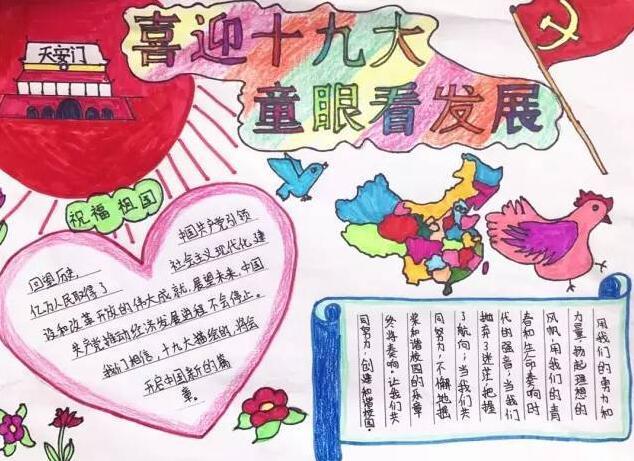 喜迎十九大
童眼看发展
天安门
祝福祖国
回望历史，
中国共产党引领
亿万人民取得了
社会主义现代化建
设和改革开放的伟大成就，展望未来，中国
共产党推动经济发展 不会停止。
我们相信，十九大描绘的，将会
开启中国新的篇
章。
用我们的勇力和
力量，扬起理想的
风帆，用我们的青
春和生命奏响时
代的强音，当我们
抛弃了迷茫，把握
了航向；当我们共
同努力，不懈地握
桨和谐校园的乐章
终将奏响。让我们共
同努力，创造和谐校园。